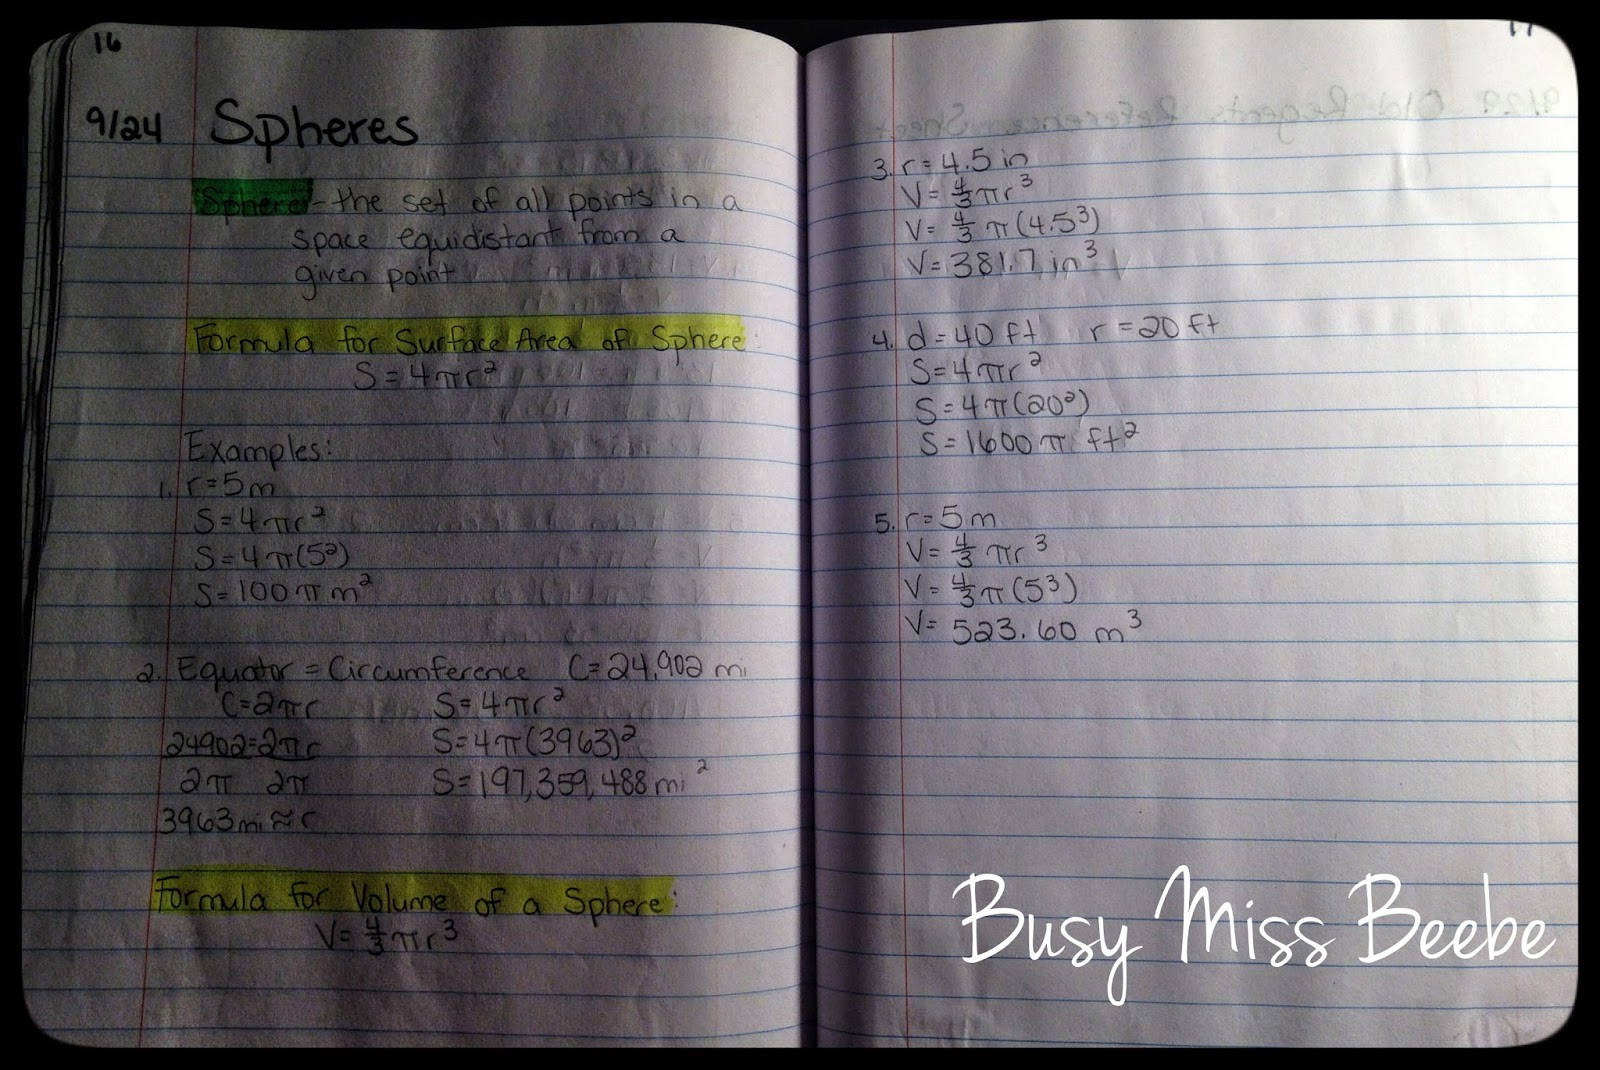 16
9/24 Spheres
Sphere - the set of all points in a
space equidistant from a
given point
Formula for Surface Area of Sphere:
S = 4πr²
Examples:
1. r = 5m
S = 4πr²
S = 4π(5²)
S = 100π m²
2. Equator = Circumference C = 24,902 mi
C = 2πr S = 4πr²
24902 = 2πr S = 4π(3963)²
2π 2π S = 197,359,488 mi²
3963 mi ≈ r
Formula for Volume of a Sphere:
V = 4/3 πr³
17
3. r = 4.5 in
V = 4/3 πr³
V = 4/3 π(4.5³)
V = 381.7 in³
4. d = 40 ft r = 20 ft
S = 4πr²
S = 4π(20²)
S = 1600π ft²
5. r = 5 m
V = 4/3 πr³
V = 4/3 π(5³)
V = 523.60 m³
Busy Miss Beebe